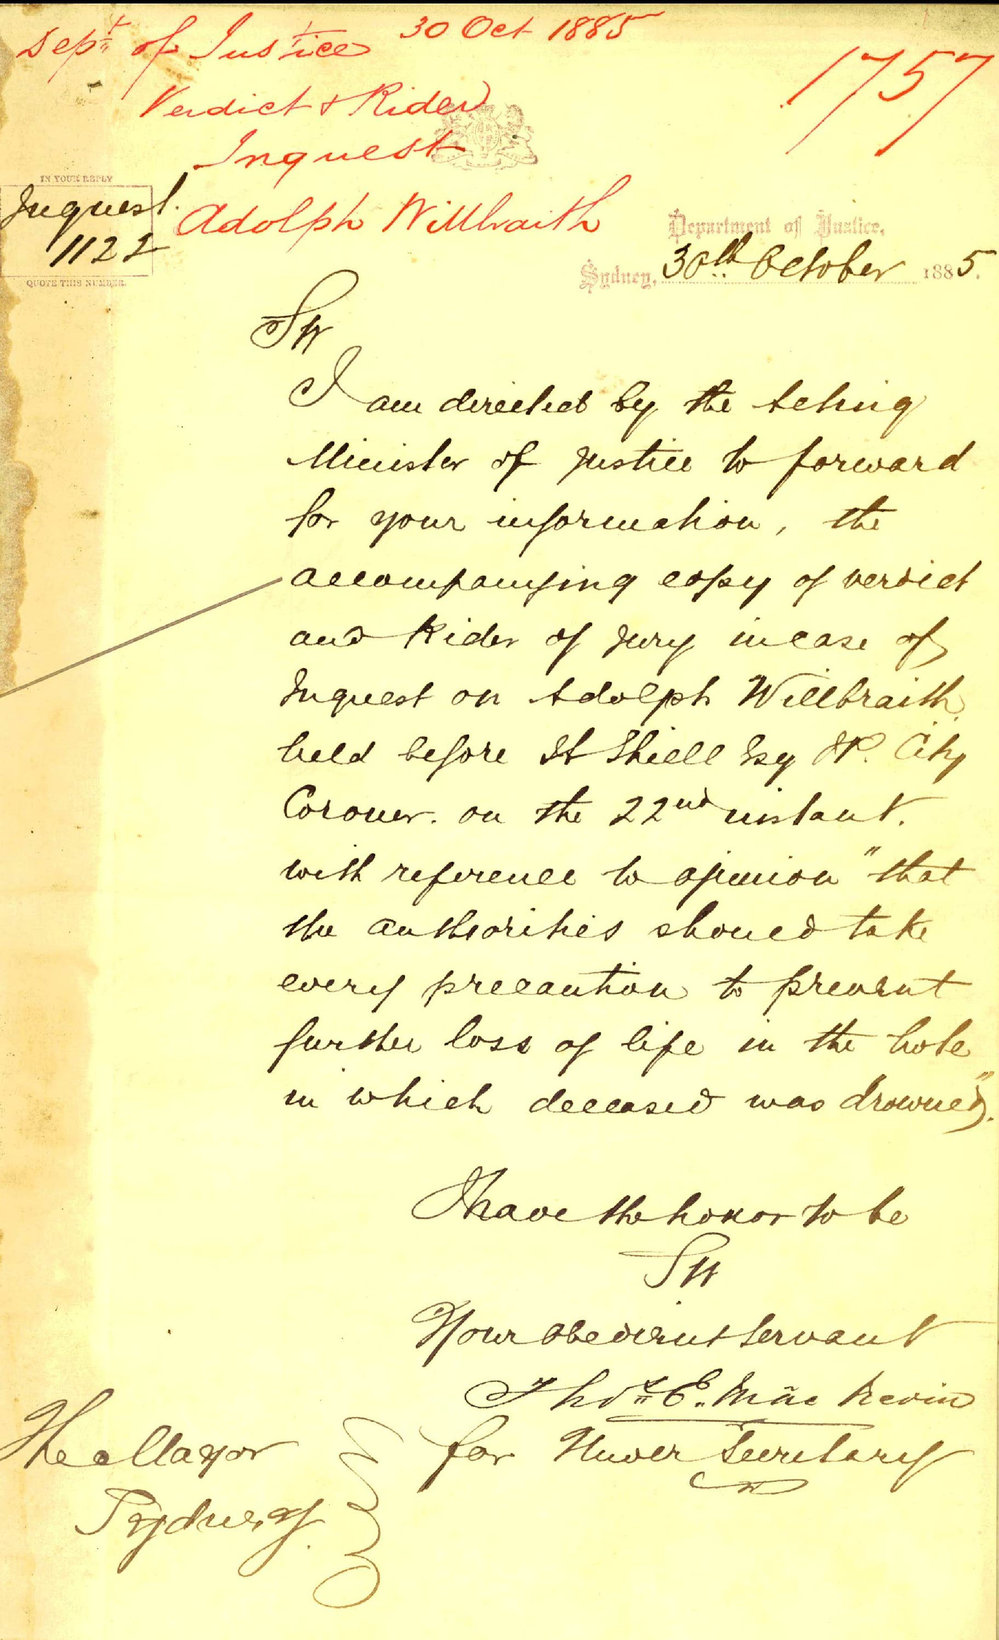 Dept of Justice 30 Oct 1885
1757
Verdict & Rider
Inquest
Adolph Willbraith
IN YOUR REPLY
Inquest.
1122
QUOTE THIS NUMBER.
Department of Justice,
Sydney, 30th October 1885.
Sir
I am directed by the Acting
Minister of Justice to forward
for your information, the
accompanying copy of verdict
and Rider of Jury in case of
Inquest on Adolph Willbraith
held before H Shiell Esq JP. City
Coroner. on the 22nd instant.
with reference to opinion "that
the authorities should take
every precaution to prevent
further loss of life in the hole
in which deceased was drowned".
I have the honor to be
Sir
Your obedient Servant
Thos E. Mac Nevin
for Under Secretary
The Mayor
Sydney.